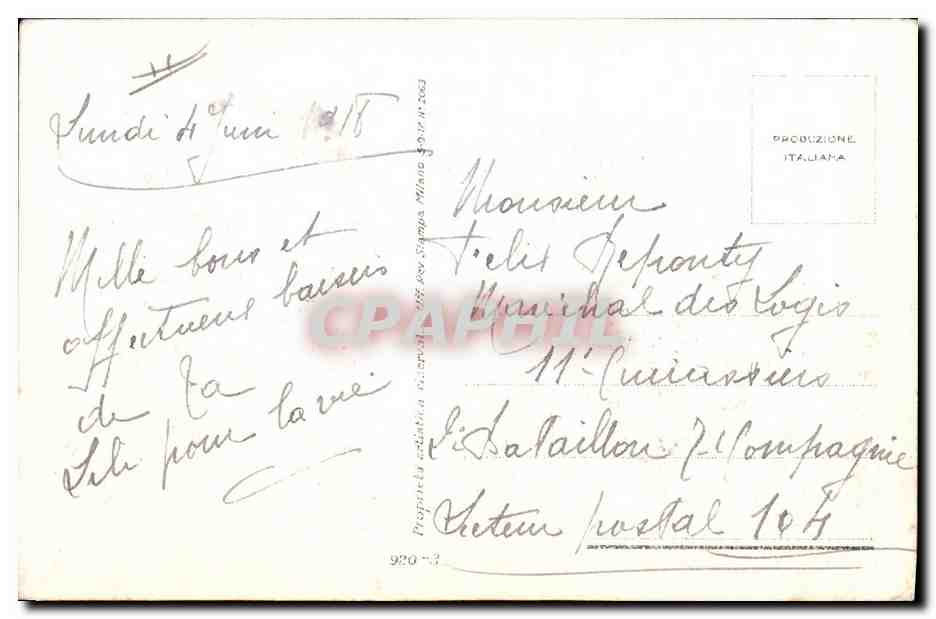 Lundi 4 Juin 1918
Mille bons et
affectueux baisers
de Ta
Lili pour la vie
Proprietà artistica riservata
Uff. Rev. Stampa Milano N° 2063
920-3
PRODUZIONE
ITALIANA
Monsieur
Felix
Maréchal des Logis
11e Cuirassiers
Bataillon 7e Compagnie
Secteur postal 104
CPAPHIL